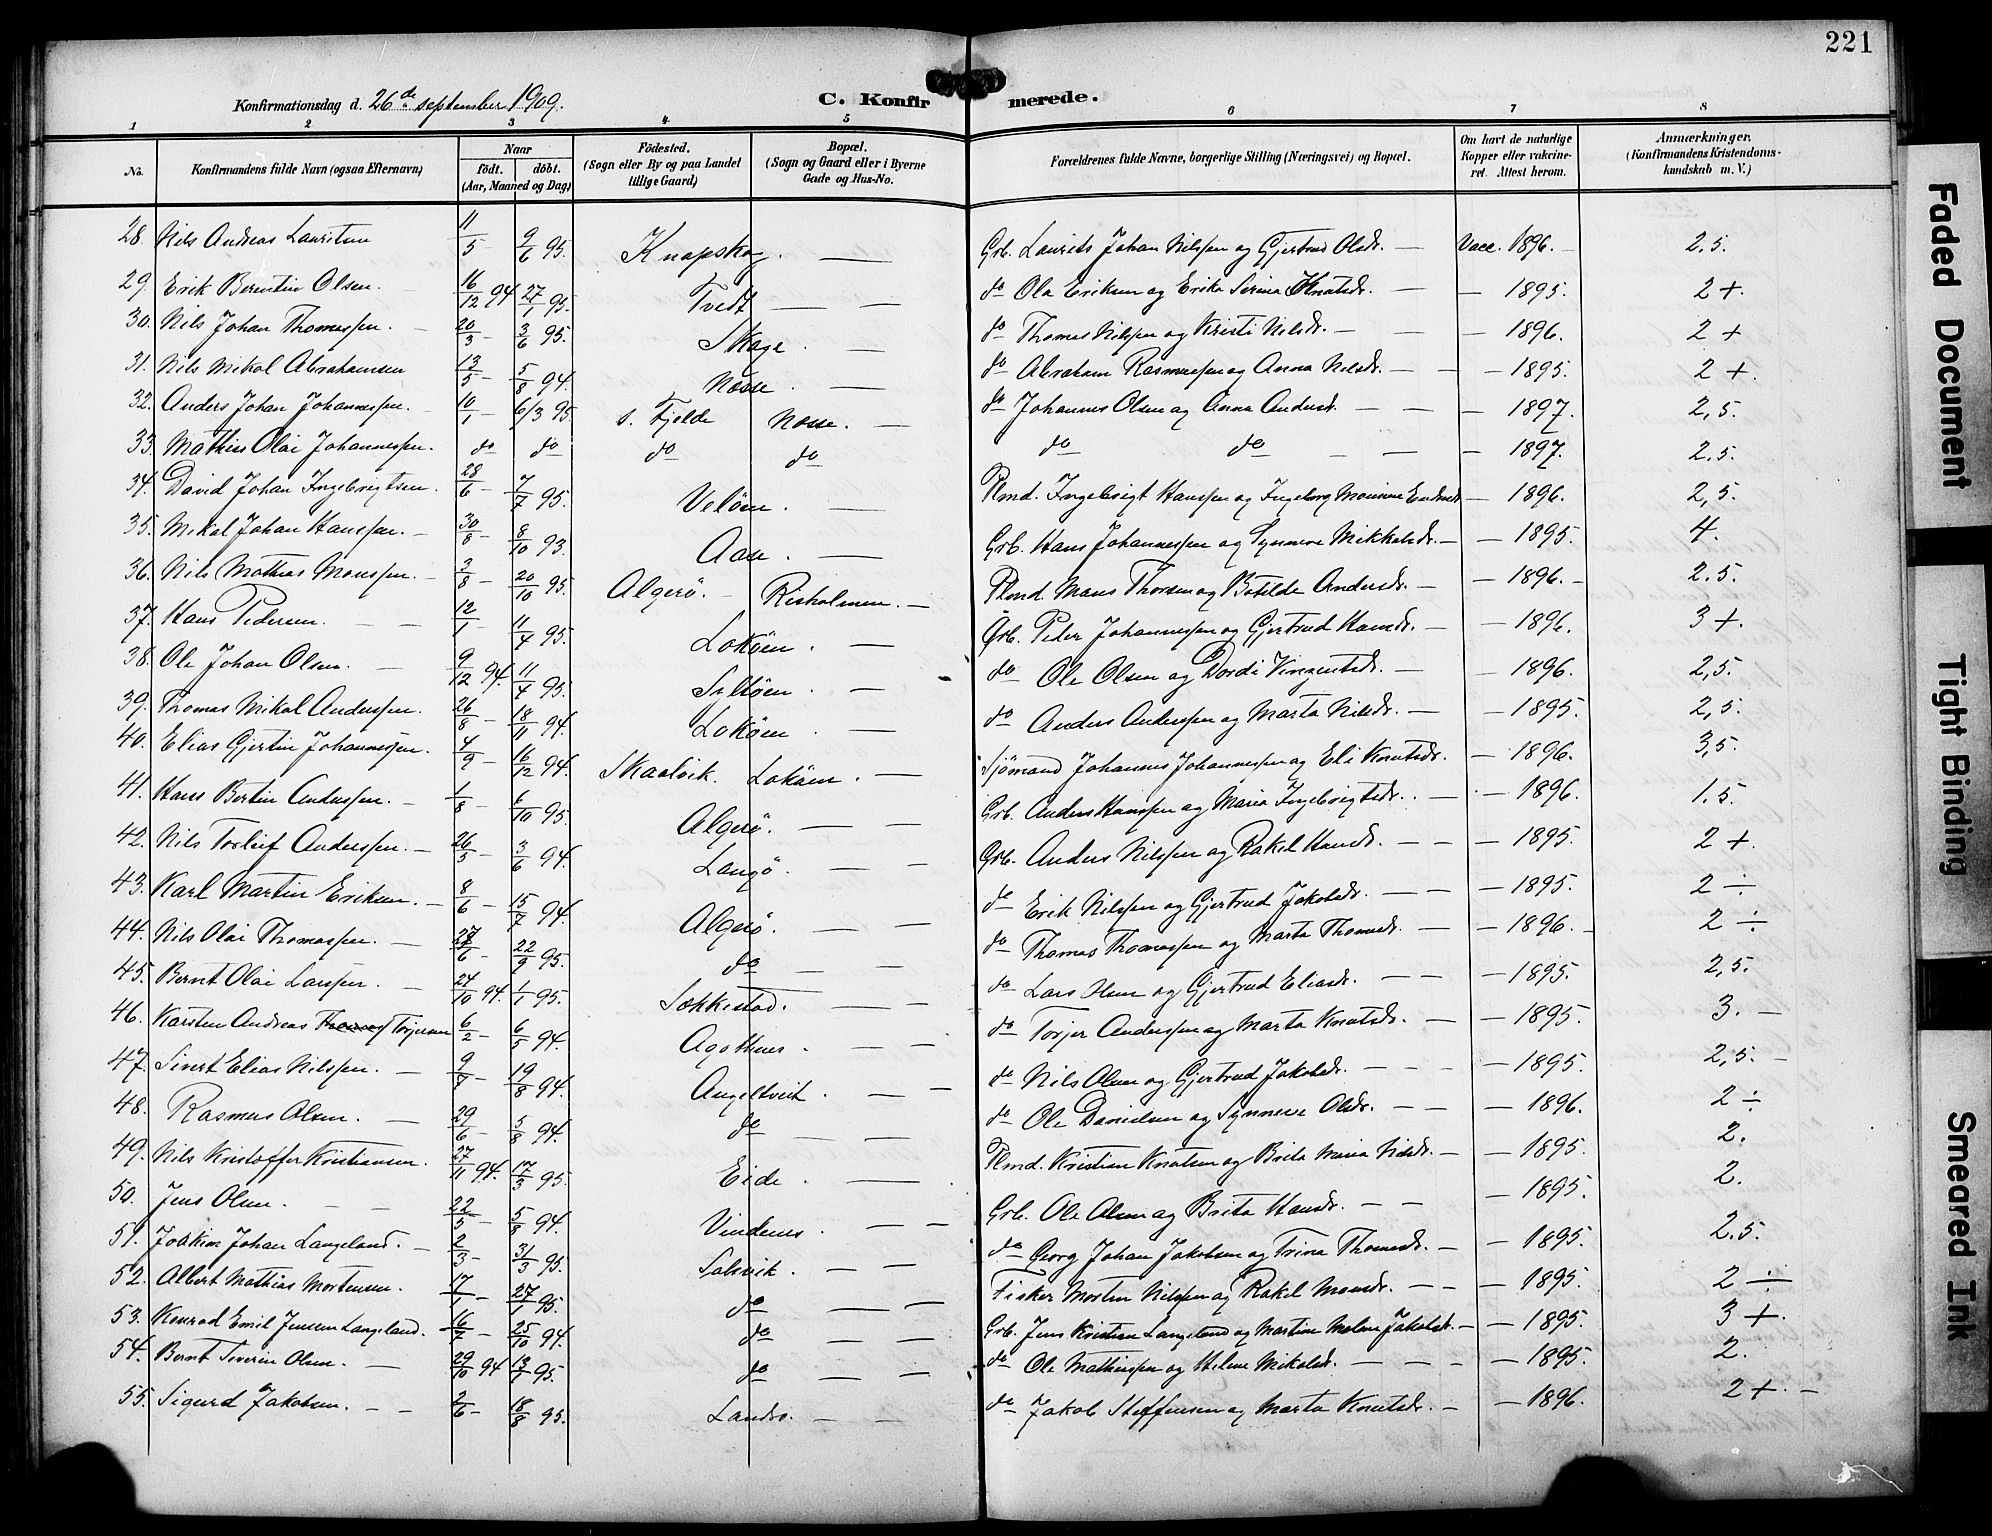 221
Konfirmationsdag d. 26de september 1909.
C. Konfirmerede.
1 2 3 4 5 6 7 8
No. Konfirmandens fulde Navn (ogsaa Efternavn) Naar født. døbt. (Aar, Maaned og Dag) Fødested. (Sogn eller By og paa Landet tillige Gaard) Bopæl. (Sogn og Gaard eller i Byerne Gade og Hus-No. Forældrenes fulde Navne, borgerlige Stilling (Næringsvei) og Bopæl. Om havt de naturlige Kopper eller vakcineret. Attest herom. Anmærkninger. (Konfirmandens Kristendomskundskab m. V.)
28. Nils Andreas Lauritsen 11/5 - 9/6 95. Knapskog — Grb. Laurits Johan Nilssen og Gjertrud Olsdr. — Vacc. 1896. - 2,5.
29. Erik Berntin Olsen. 16/12 94 27/1 95. Tvedt — do Ola Eriksen og Erika Serina Knutsdr. — — 1895. 2+.
30. Nils Johan Thomassen. — 20/3 - 3/6 95. Skage. — do Thomas Nilssen og Kristi Nilsdr. — — 1896. 2+
31. Nils Mikal Abrahamsen 13/5 - 5/8 94. Nosse. — do Abraham Rasmussen og Anna Nilsdr. — — 1895. 2+.
32. Anders Johan Johannessen. 10/1 - 6/3 95. s. Fjelde Nosse. — do Johannes Olsen og Anna Andersdr. — — 1897. 2,5.
33. Mathias Olai Johannessen. do do do do do do — — 1897. 2,5.
34. David Johan Ingebrigtsen. 28/6 - 7/7 95. Veløen. — Plmd. Ingebrigt Hanssen og Ingeborg Monsine — 1896. 2,5.
35. Mikal Johan Hanssen. - 30/8 - 8/10 93. Aase. — Grb. Hans Johannessen og Synneve Mikkelsdr. — 1895. 4.
36. Nils Mathias Monssen. - 3/8 - 20/10 95. Algerø. - Risholmen. — Plmd. Mons Thorsen og Botilde Andersdr. — — 1896. - 2.5.
37. Hans Pedersen. — — 12/1 - 11/4 95. Lokøen. — Grb. Peder Johannessen og Gjertrud Hansdr. — — 1896. 3+.
38. Ole Johan Olsen. — 9/12 94. 11/4 95. Seløen. — do Ole Olsen og Dordi Vingentsdr. — — 1896. 2,5.
39. Thomas Mikal Anderssen. 26/8 - 18/11 94. Lokøen. — do Anders Anderssen og Marta Nilsdr. — — 1895. 2,5.
40. Elias Gjertin Johannessen. 4/9 - 16/12 94. Skaalvik. Lokøen. — Sjømand Johannes Johannessen og Eli Knutsdr. — 1896. 3,5.
41. Hans Bertin Anderssen. - 1/8 - 6/10 95. Algerø. — — Grb. Anders Hanssen og Maria Ingebrigtsdr. — — 1896. 1.5.
42. Nils Torleif Anderssen. - 26/5 - 3/6 94. Langø. — — Grb. Anders Nilssen og Rakel Hansdr. — — — 1895. 2+.
43. Karl Martin Eriksen. - 8/6 - 15/7 94. Algerø. — — do Erik Nilssen og Gjertrud Jakobsdr. — — — 1895. 2÷
44. Nils Olai Thomassen. — 27/6 - 22/9 95. do — — do Thomas Thomassen og Marta Thomasdr. — — 1896. 2÷
45. Bernt Olai Larssen. — 24/10 94. 1/1 95. Sekkestad. — — do Lars Olsen og Gjertrud Eliasdr. — — — 1895. 2,5.
46. Karsten Andreas Torjersen 6/2 - 6/5 94. Agothnes — — do Torjer Anderssen og Marta Knutsdr. — — 1895. 3. —
47. Sivert Elias Nilssen. — 9/7 - 19/8 94. Angeltveit — — do Nils Olsen og Gjertrud Jakobsdr. — — — 1895. 2,5. -
48. Rasmus Olsen. — 29/6 - 5/8 94. do — — do Ole Danielsen og Synneve Olsdr. — — — 1896. 2÷
49. Nils Kristoffer Kristiansen. 27/11 94. 17/3 95. Eide. — — Plmd. Kristian Knutsen og Brita Maria Nilsdr. — — 1895. 2.
50. Jens Olsen. — — 22/5 - 5/8 94. Vindenes. — — Grb. Ole Olsen og Brita Hansdr. — — — 1895. 2.
51. Joakim Johan Langeland. - 2/3 - 31/3 95. Solsvik. — — do Georg Johan Jakobsen og Trina Thomasdr. — — 1895. 2.5.
52. Albert Mathias Mortensen. 17/1 - 27/1 95. do — — Fisker Morten Nilssen og Rakel Monsdr. — — — 1895. 2÷
53. Konrad Emil Jensen Langeland. 16/7 - 25/10 94. do — — Grb. Jens Kristian Langeland og Martine Malene Jakobsdr. — — 1895. 3+.
54. Bernt Severin Olsen. — 29/10 94 13/1 95. do — — do Ole Mathiassen og Helene Mikalsdr. — — — 1895. 2.
55. Sigurd Jakobsen. — — 2/6 - 18/8 95. Landro. — — do Jakob Steffensen og Marta Knutsdr. — — 1896. 2+. -
Faded Document
Tight Binding
Smeared Ink